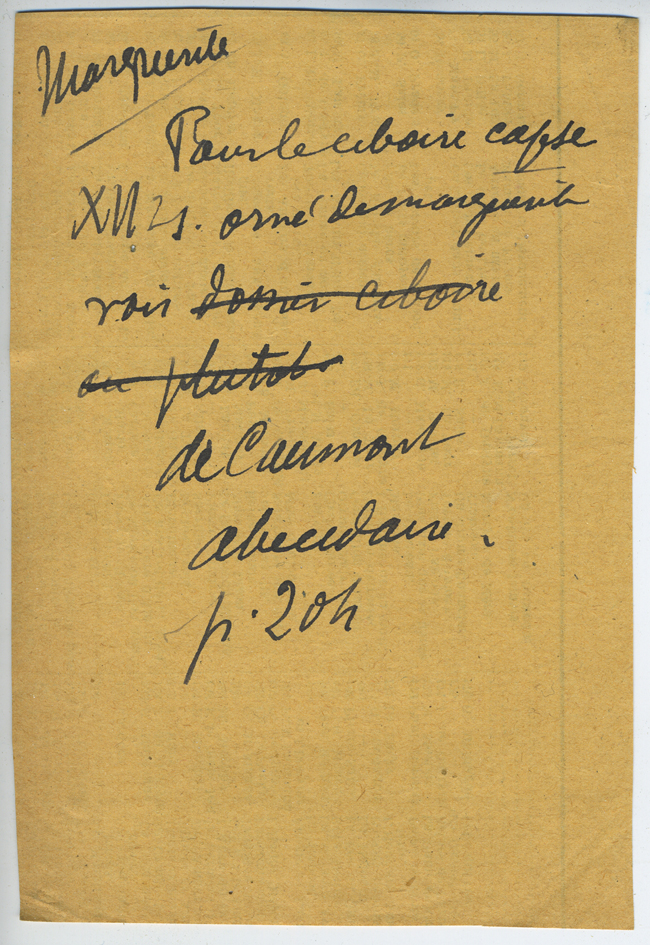 Marguerite
Pour le ciboire capse
XII s. orné de marguerite
voir dossier ciboire
ou plutot
de Caumont
abecedaire.
p. 204